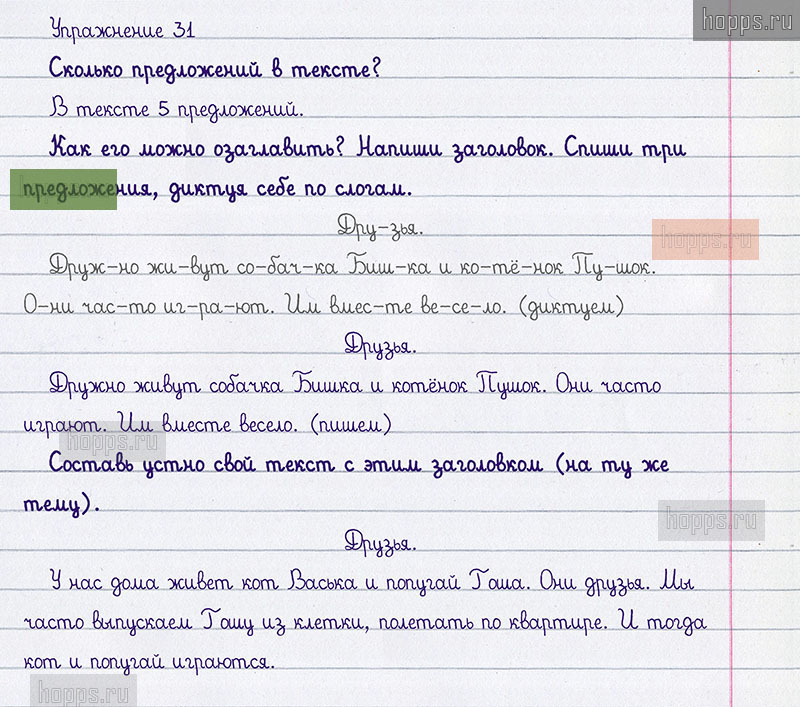 hopps.ru
Упражнение 31
Сколько предложений в тексте?
В тексте 5 предложений.
Как его можно озаглавить? Напиши заголовок. Спиши три
предложения, диктуя себе по слогам.
Дру-зья.
hopps.ru
Друж-но жи-вут со-бач-ка Биш-ка и ко-тё-нок Пу-шок.
О-ни час-то иг-ра-ют. Им вмес-те ве-се-ло. (диктуем)
Друзья.
Дружно живут собачка Бишка и котёнок Пушок. Они часто
играют. Им вместе весело. (пишем)
hopps.ru
Составь устно свой текст с этим заголовком (на ту же
тему).
hopps.ru
Друзья.
У нас дома живет кот Васька и попугай Гоша. Они друзья. Мы
часто выпускаем Гошу из клетки, полетать по квартире. И тогда
кот и попугай играются.
hopps.ru